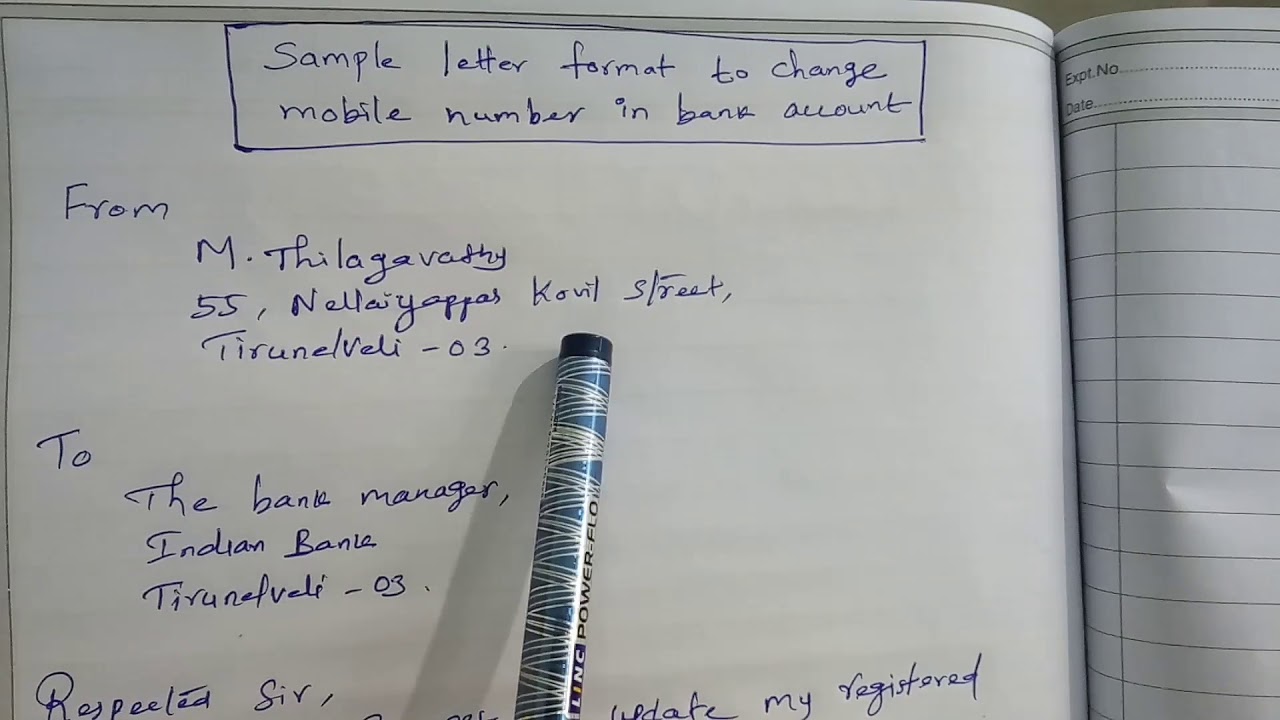 Sample letter format to change
mobile number in bank account
Expt.No
Date
From
M. Thilagavathy
55, Nellaiyappar Kovil Street,
Tirunelveli - 03.
To
The bank manager,
Indian Bank
Tirunelveli - 03.
LINC POWER-FLO
Respected Sir,
update my registered